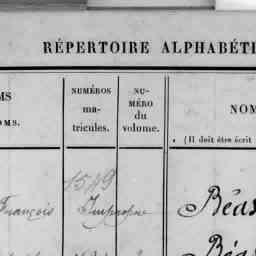 RÉPERTOIRE ALPHABÉTI
MS
OMS.
NUMÉROS
ma-
tricules.
NU-
MÉRO
du
volume.
NOM
(Il doit être écrit
1549
François Impropre Béas
Béa